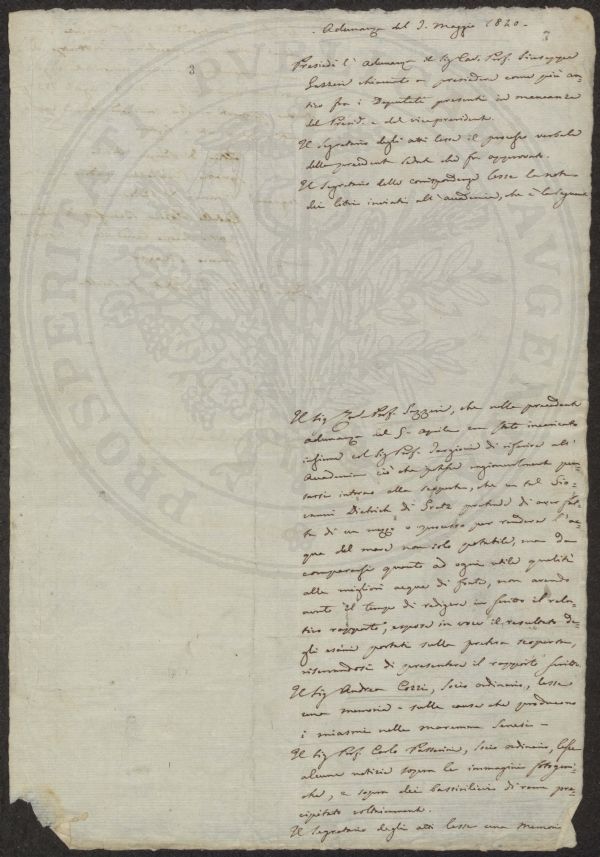 Adunanza del 3. Maggio 1820.
7
3
Presiedè l'Adunanza il Sig. Cav. Prof. Giuseppe
Gazzeri chiamato a presedere come più an-
tico fra i Deputati presenti in mancanza
del Presid. e del vicepresidente.
Il Segretario degli atti lesse il processo verbale
della precedente seduta che fu approvato.
Il Segretario delle corrispondenze lesse la nota
dei libri inviati all'accademia, che è la seguente
Il Sig. Prof. Gazzeri, che nella precedente
adunanza del 5 Aprile era stato incaricato
insieme col Sig. Prof. Targioni di riferire all'
Accademia ciò che potesse ragionevolmente pen-
sarsi intorno alla scoperta, che un tal Gio-
vanni Dietrich di Gratz pretende di aver fat-
ta di un mezzo o processo per rendere l'ac-
qua del mare non solo potabile, ma da
compararsi quanto ad ogni utile qualità
alle migliori acque di fonte, non avendo
avuto il tempo di redigere in scritto il rela-
tivo rapporto, espose in voce il resultato de-
gli esami portati sulla pretesa scoperta,
riserbandosi di presentare il rapporto scritto.
Il Sig. Andrea Cozzi, socio ordinario, lesse
una memoria sulle cause che producono
i miasmi nelle maremme Senesi
Il Sig. Prof. Carlo Passerini, socio ordinario, lesse
alcune notizie sopra le immagini fotogeni-
che, e sopra dei bassirilievi di rame pre-
cipitato voltianamente.
Il Segretario degli atti lesse una memoria
PROSPERITATI PUBLICAE AUGENDAE